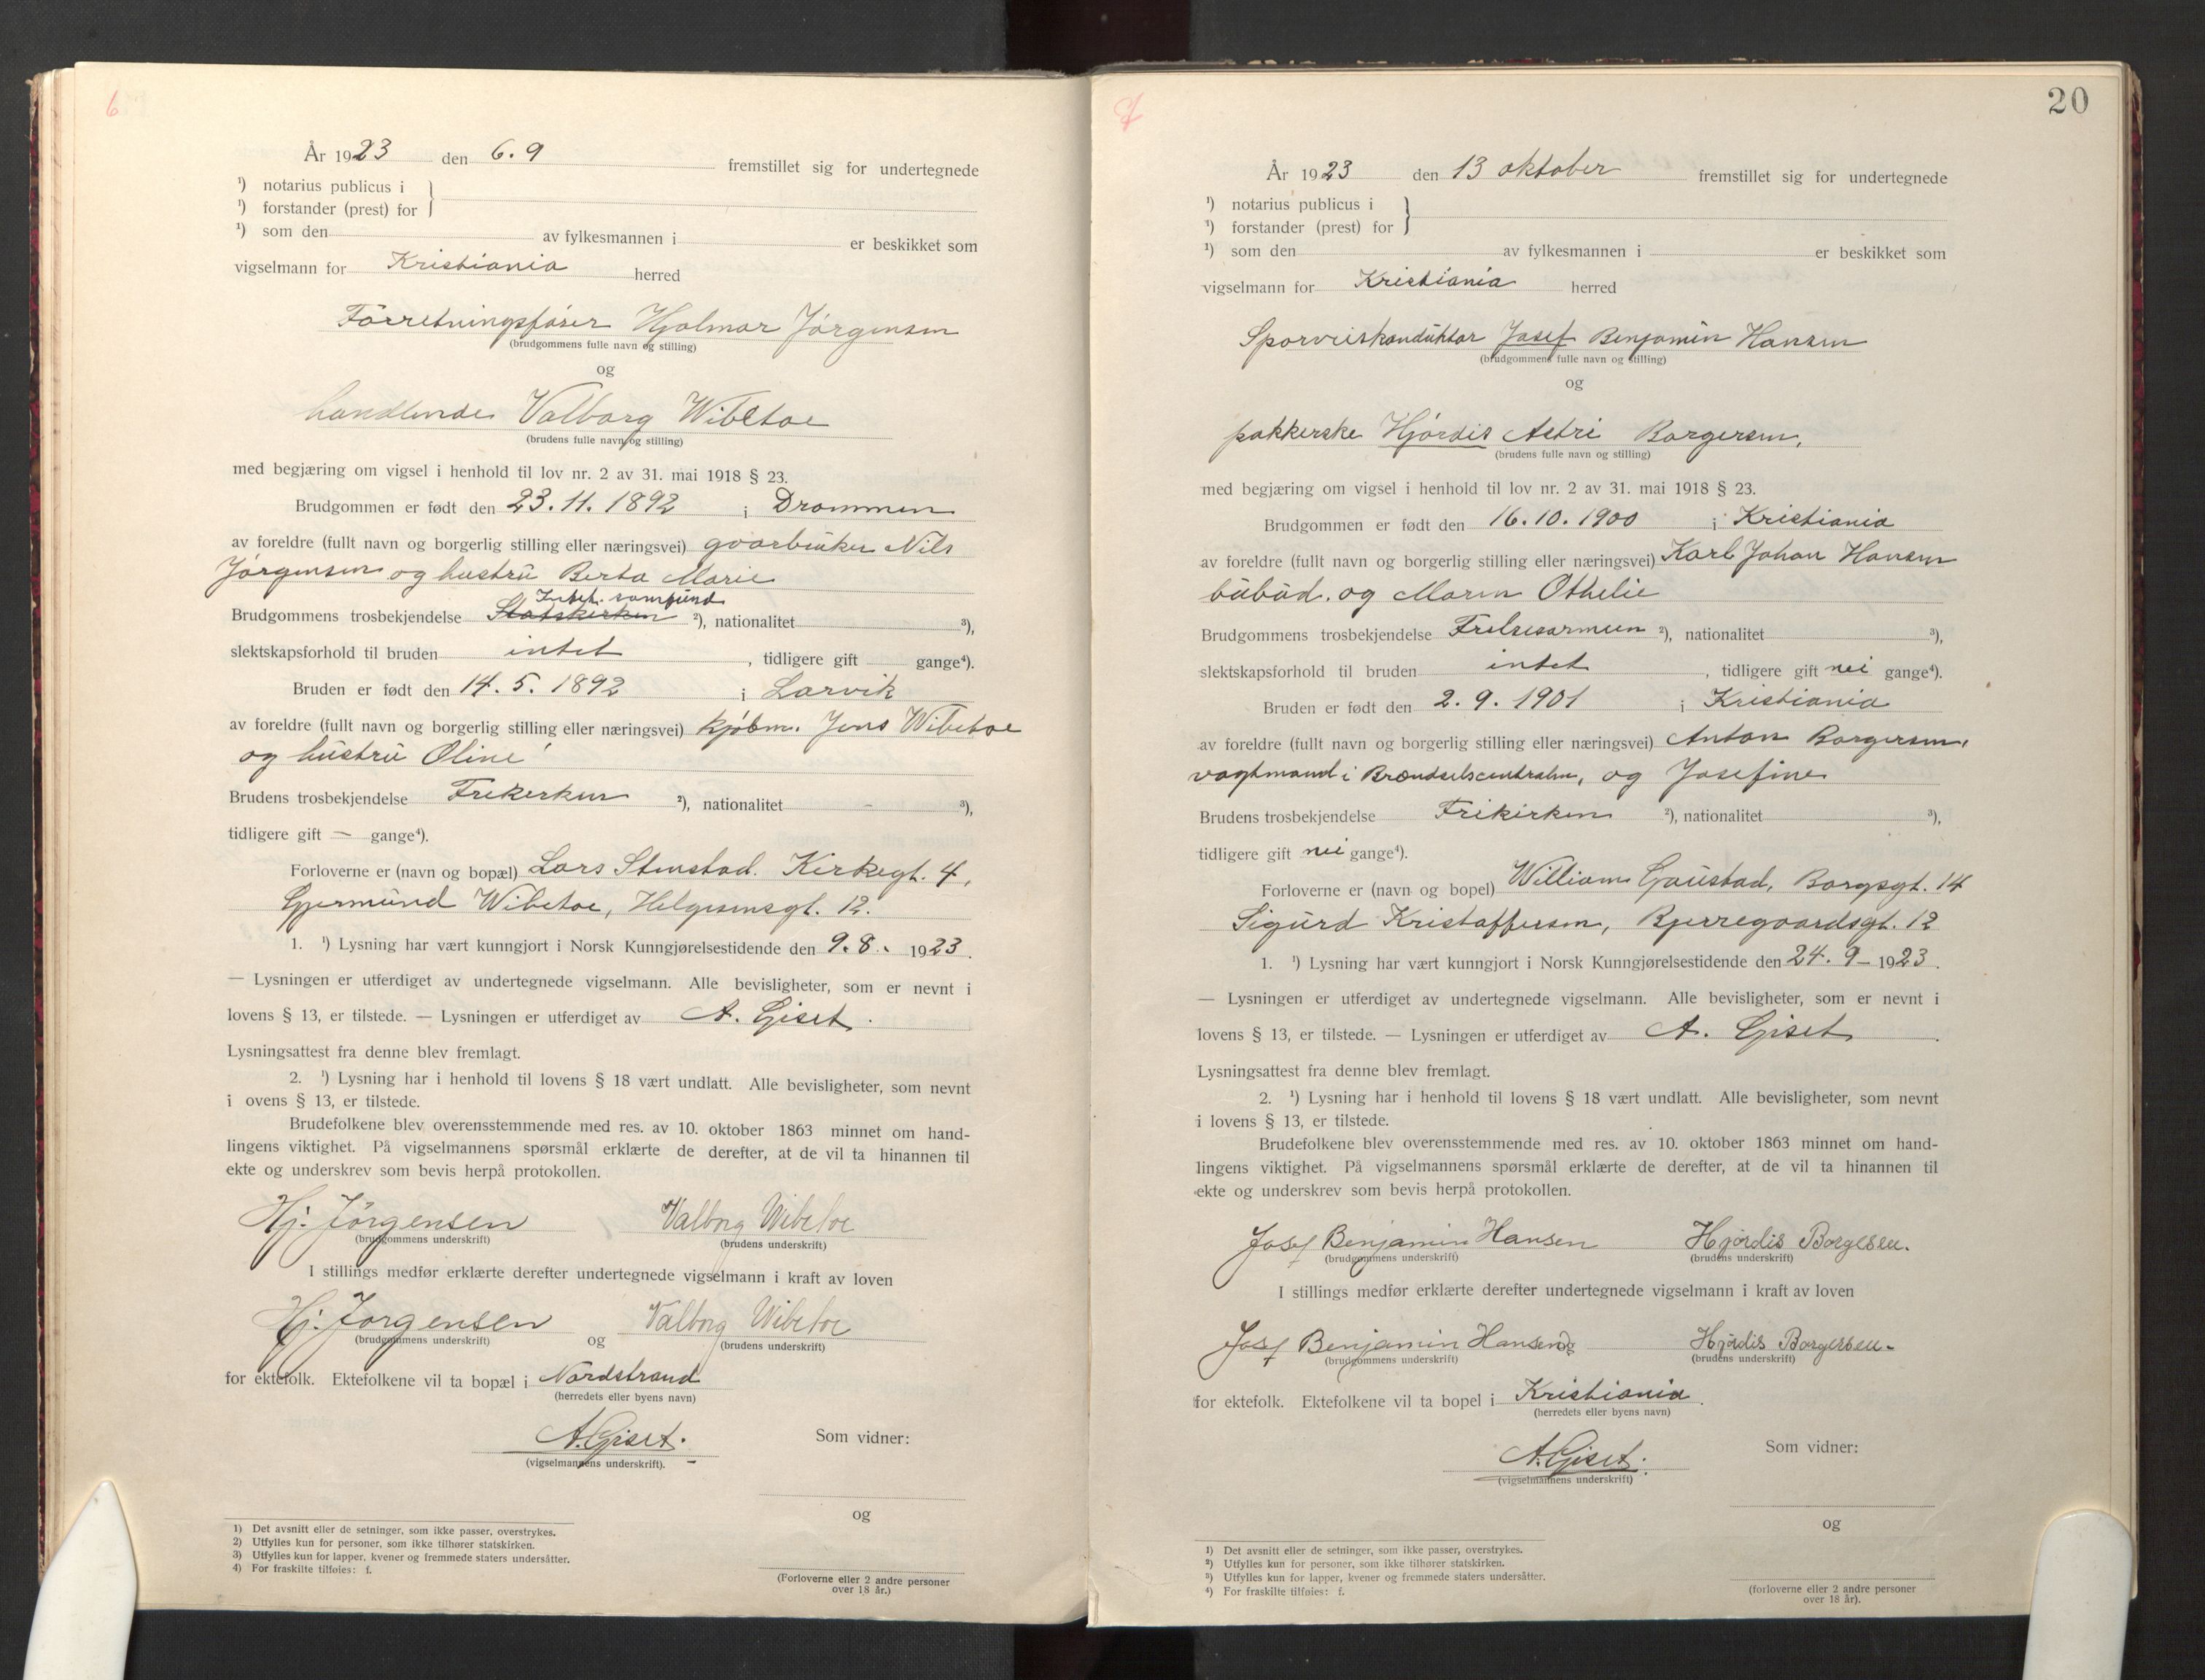 6
År 1923 den 6.9 fremstillet sig for undertegnede
¹) notarius publicus i
¹) forstander (prest) for
¹) som den av fylkesmannen i er beskikket som
vigselmann for Kristiania herred
Forretningsfører Hjalmar Jørgensen
(brudgommens fulle navn og stilling)
og
handlende Valborg Wibetoe
(brudens fulle navn og stilling)
med begjæring om vigsel i henhold til lov nr. 2 av 31. mai 1918 § 23.
Brudgommen er født den 23.11.1892 i Drammen
av foreldre (fullt navn og borgerlig stilling eller næringsvei) gaarbruker Nils
Jørgensen og hustru Berta Marie
samfund
Brudgommens trosbekjendelse Statskirken ²), nationalitet ³),
slektskapsforhold til bruden intet, tidligere gift gange⁴).
Bruden er født den 14.5.1892 i Larvik
av foreldre (fullt navn og borgerlig stilling eller næringsvei) kjøbm. Jens Wibetoe
og hustru Oline
Brudens trosbekjendelse Frikirken ²), nationalitet - ³),
tidligere gift — gange⁴).
Forloverne er (navn og bopæl) Lars Stenstad. Kirkegt. 4,
Gjermund Wibetoe, Helgesensgt. 12.
1. ¹) Lysning har vært kunngjort i Norsk Kunngjørelsestidende den 9.8. 1923.
— Lysningen er utferdiget av undertegnede vigselmann. Alle bevisligheter, som er nevnt i
lovens § 13, er tilstede. — Lysningen er utferdiget av A. Giset.
Lysningsattest fra denne blev fremlagt.
2. ¹) Lysning har i henhold til lovens § 18 vært undlatt. Alle bevisligheter, som nevnt
i ovens § 13, er tilstede.
Brudefolkene blev overensstemmende med res. av 10. oktober 1863 minnet om hand-
lingens viktighet. På vigselmannens spørsmål erklærte de derefter, at de vil ta hinannen til
ekte og underskrev som bevis herpå protokollen.
Hj. Jörgensen Valborg Wibetoe
(brudgommens underskrift) (brudens underskrift)
I stillings medfør erklærte derefter undertegnede vigselmann i kraft av loven
Hj. Jörgensen og Valborg Wibetoe
(brudgommens underskrift) (brudens underskrift)
for ektefolk. Ektefolkene vil ta bopæl i Nordstrand
(herredets eller byens navn)
A. Giset.
(vigselmannens underskrift).
Som vidner:
og
(Forloverne eller 2 andre personer
over 18 år.)
1) Det avsnitt eller de setninger, som ikke passer, overstrykes.
2) Utfylles kun for personer, som ikke tilhører statskirken.
3) Utfylles kun for lapper, kvener og fremmede staters undersåtter.
4) For fraskilte tilføies: f.
20
År 1923 den 13 oktober fremstillet sig for undertegnede
¹) notarius publicus i
¹) forstander (prest) for
¹) som den av fylkesmannen i er beskikket som
vigselmann for Kristiania herred
Sporveiskonduktør Josef Benjamin Hansen
(brudgommens fulle navn og stilling)
og
pakkerske Hjørdis Astri Borgersen,
(brudens fulle navn og stilling)
med begjæring om vigsel i henhold til lov nr. 2 av 31. mai 1918 § 23.
Brudgommen er født den 16.10.1900 i Kristiania
av foreldre (fullt navn og borgerlig stilling eller næringsvei) Karl Johan Hansen
bübud. og Maren Othelie
Brudgommens trosbekjendelse Frelsesarmeen ²), nationalitet ³),
slektskapsforhold til bruden intet, tidligere gift nei gange⁴).
Bruden er født den 2.9.1901 i Kristiania
av foreldre (fullt navn og borgerlig stilling eller næringsvei) Anton Borgersen,
vagtmand i Brændselscentralen, og Josefine
Brudens trosbekjendelse Frikirken ²), nationalitet ³),
tidligere gift nei gange⁴).
Forloverne er (navn og bopel) William Gaustad, Borgsgt. 14
Sigurd Kristoffersen, Bjerregaardsgt. 12
1. ¹) Lysning har vært kunngjort i Norsk Kunngjørelsestidende den 24.9 – 1923.
— Lysningen er utferdiget av undertegnede vigselmann. Alle bevisligheter, som er nevnt i
lovens § 13, er tilstede. — Lysningen er utferdiget av A. Giset.
Lysningsattest fra denne blev fremlagt.
2. ¹) Lysning har i henhold til lovens § 18 vært undlatt. Alle bevisligheter, som nevnt
i lovens § 13, er tilstede.
Brudefolkene blev overensstemmende med res. av 10. oktober 1863 minnet om hand-
lingens viktighet. På vigselmannens spørsmål erklærte de derefter, at de vil ta hinannen til
ekte og underskrev som bevis herpå protokollen.
Josef Benjamin Hansen Hjørdis Borgesen.
(brudgommens underskrift) (brudens underskrift)
I stillings medfør erklærte derefter undertegnede vigselmann i kraft av loven
Josef Benjamin Hansen og Hjørdis Borgersen.
(brudgommens underskrift) (brudens underskrift)
for ektefolk. Ektefolkene vil ta bopel i Kristiania.
(herredets eller byens navn)
A. Giset.
(vigselmannens underskrift)
Som vidner:
og
(forloverne eller 2 andre personer
over 18 år).
¹) Det avsnitt eller de setninger, som ikke passer, overstrykes.
²) Utfylles kun for personer, som ikke tilhører statskirken.
³) Utfylles kun for lapper, kvener og fremmede staters undersåtter.
⁴) For fraskilte tilføies: f.